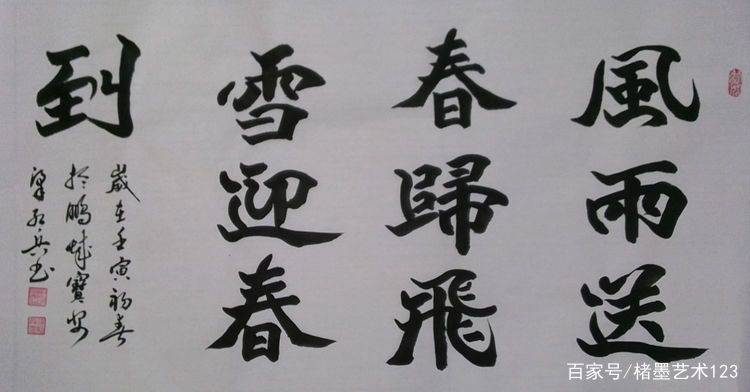 風雨送
春歸飛
雪迎春
到
歲在壬寅初春
於鵬城寶安
梁紅兵书
百家号/楮墨艺术123